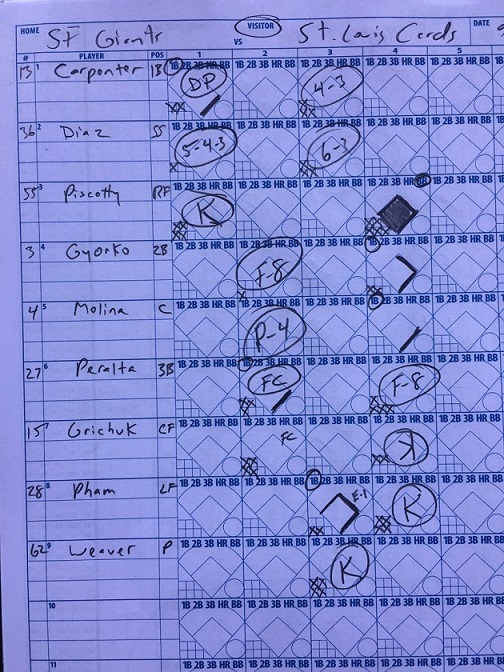 HOME SF Giants VS VISITOR St. Louis Cards DATE
# PLAYER POS 1 2 3 4 5
1B 2B 3B HR BB 1B 2B 3B HR BB 1B 2B 3B HR BB 1B 2B 3B HR BB 1B 2B 3B HR BB
13 1 Carpenter 1B DP 4-3
1B 2B 3B HR BB 1B 2B 3B HR BB 1B 2B 3B HR BB 1B 2B 3B HR BB 1B 2B 3B HR BB
36 2 Diaz SS 5-4-3 6-3
1B 2B 3B HR BB 1B 2B 3B HR BB 1B 2B 3B HR BB 1B 2B 3B HR BB 1B 2B 3B HR BB
55 3 Piscotty RF K
1B 2B 3B HR BB 1B 2B 3B HR BB 1B 2B 3B HR BB 1B 2B 3B HR BB 1B 2B 3B HR BB
3 4 Gyorko 2B F-8
1B 2B 3B HR BB 1B 2B 3B HR BB 1B 2B 3B HR BB 1B 2B 3B HR BB 1B 2B 3B HR BB
4 5 Molina C P-4
1B 2B 3B HR BB 1B 2B 3B HR BB 1B 2B 3B HR BB 1B 2B 3B HR BB 1B 2B 3B HR BB
27 6 Peralta 3B FC F-8
1B 2B 3B HR BB 1B 2B 3B HR BB 1B 2B 3B HR BB 1B 2B 3B HR BB 1B 2B 3B HR BB
15 7 Grichuk CF FC K
1B 2B 3B HR BB 1B 2B 3B HR BB 1B 2B 3B HR BB 1B 2B 3B HR BB 1B 2B 3B HR BB
28 8 Pham LF E-1 K
1B 2B 3B HR BB 1B 2B 3B HR BB 1B 2B 3B HR BB 1B 2B 3B HR BB 1B 2B 3B HR BB
62 9 Weaver P K
10 1B 2B 3B HR BB 1B 2B 3B HR BB 1B 2B 3B HR BB 1B 2B 3B HR BB 1B 2B 3B HR BB
11 1B 2B 3B HR BB 1B 2B 3B HR BB 1B 2B 3B HR BB 1B 2B 3B HR BB 1B 2B 3B HR BB